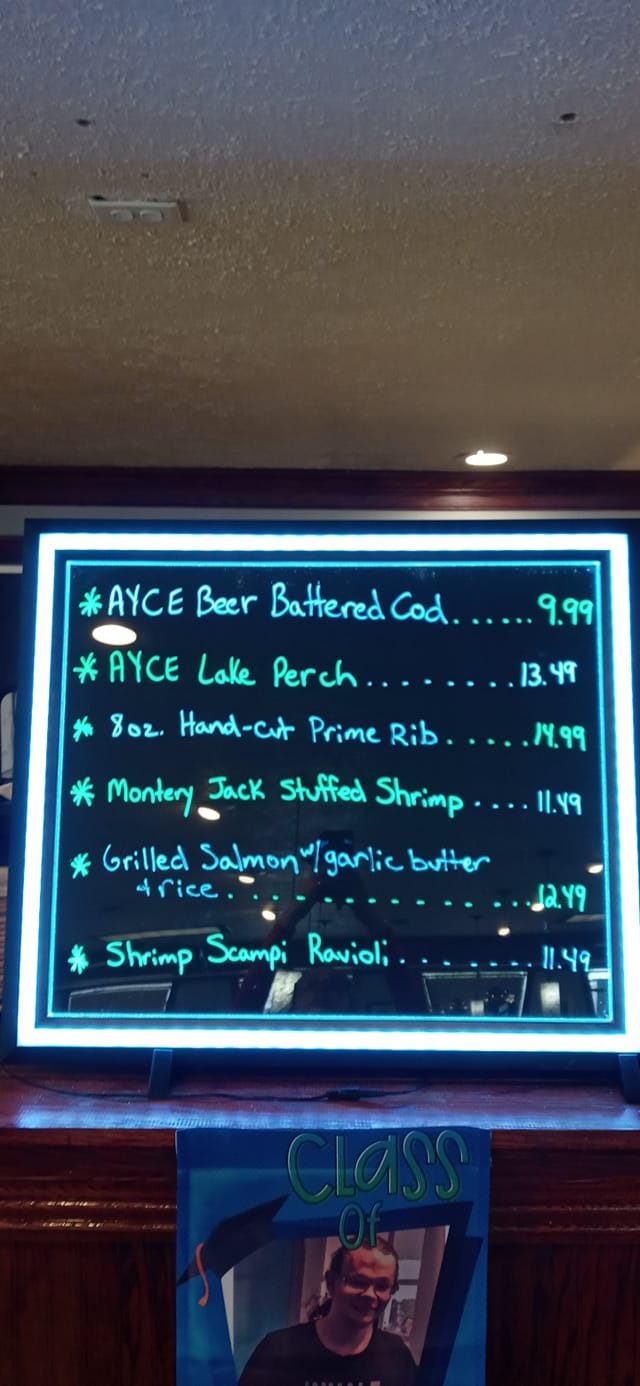 * AYCE Beer Battered Cod......9.99
* AYCE Lake Perch........13.49
* 8oz. Hand-cut Prime Rib.....14.99
* Montery Jack Stuffed Shrimp....11.49
* Grilled Salmon w/garlic butter
& rice...............12.49
* Shrimp Scampi Ravioli.......11.49
CLASS
Of